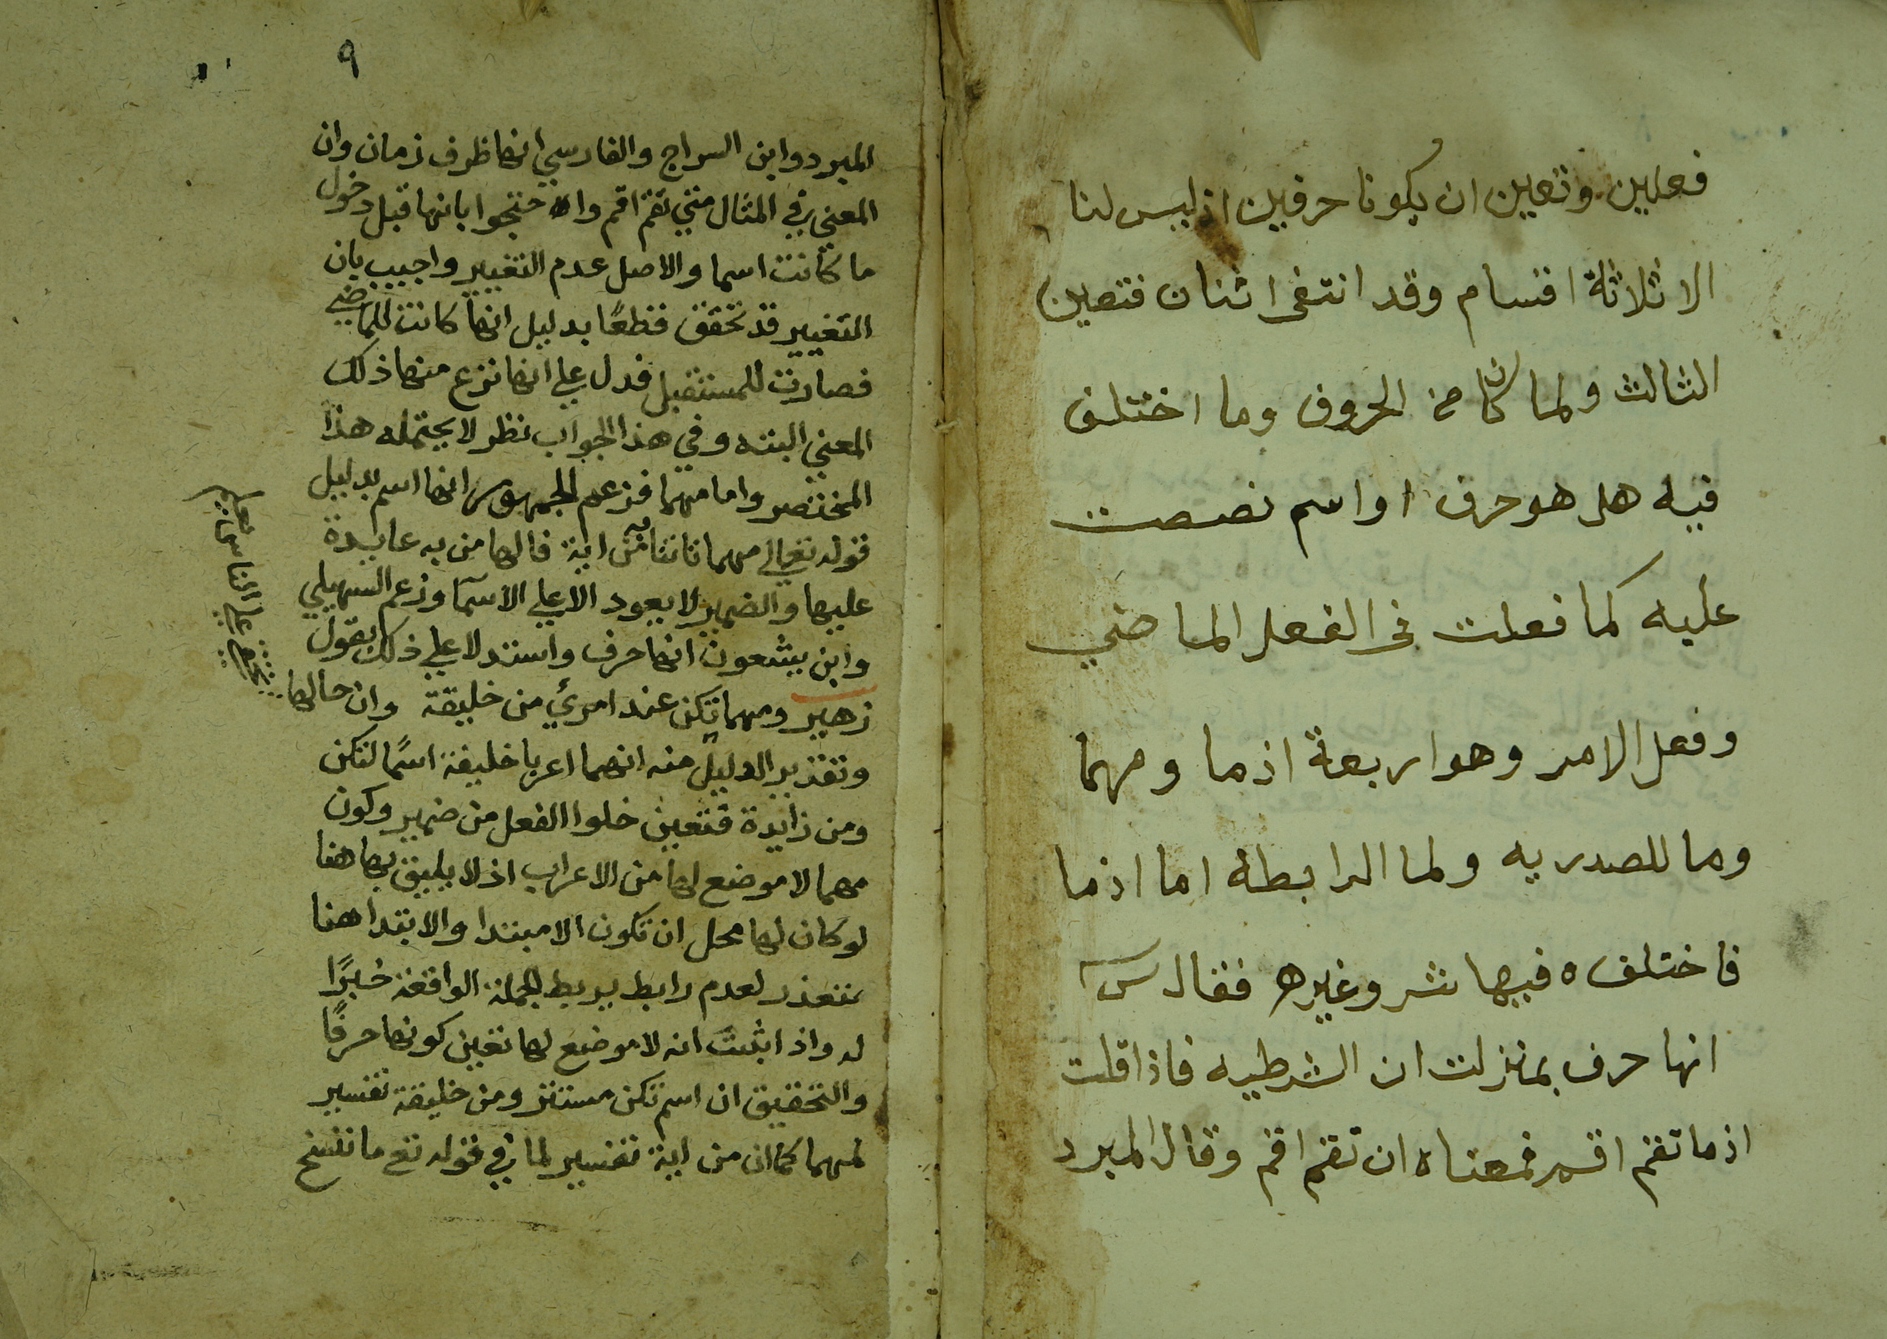 فعلين وتعين ان يكونا حرفين اذ ليس لنا
الا ثلاثة اقسام وقد انتفى اثنان فتعين
الثالث ولما كان من الحروف وما اختلف
فيه هل هو حرف او اسم نصصت
عليه كما فعلت في الفعل الماضي
وفعل الامر وهو اربعة اذما ومهما
وما المصدريه ولما الرابطة اما اذما
فاختلف فيها وغيره فقال س
انها حرف بمنزلت ان الشرطيه فاذا قلت
اذما تقم اقم فمعناه ان تقم اقم وقال المبرد
٩
المبرد وابن السراج والفارسي انها ظرف زمان وان
المعنى في المثال متى تقم اقم واحتجوا بانها قبل دخول
ما كانت اسما والاصل عدم التغيير واجيب بان
التغيير قد تحقق قطعًا بدليل انها كانت للماضي
فصارت للمستقبل فدل علي انها نزع منها ذلك
المعني البته وفي هذا الجواب نظر لا يحتمله هذا
المختصر واما مهما فزعم الجمهور انها اسم بدليل
قوله تعالي مهما تاتنا به من اية فالها من به عايدة
عليها والضمير لا يعود الا علي الاسما وزعم السهيلي
وابن يسعون انها حرف واستدلا علي ذلك بقول
زهير ومهما تكن عند امرئ من خليقة وان خالها
تخفى علي الناس تعلم
وتقرير الدليل منه انهما اعربا خليقة اسمًا لتكن
ومن زايدة فتعين خلوا الفعل من ضمير وكون
مهما لا موضع لها من الاعراب اذ لا يليق بها هنا
لو كان لها محل ان تكون الا مبتدا والابتدا هنا
متعذر لعدم رابط يربط الجملة الواقعة خبرًا
له واذا ثبت انه لا موضع لها تعين كونها حرفًا
والتحقيق ان اسم تكن مستتر ومن خليقة تفسير
لمهما كما ان من اية تفسير لما في قوله تع ما ننسخ